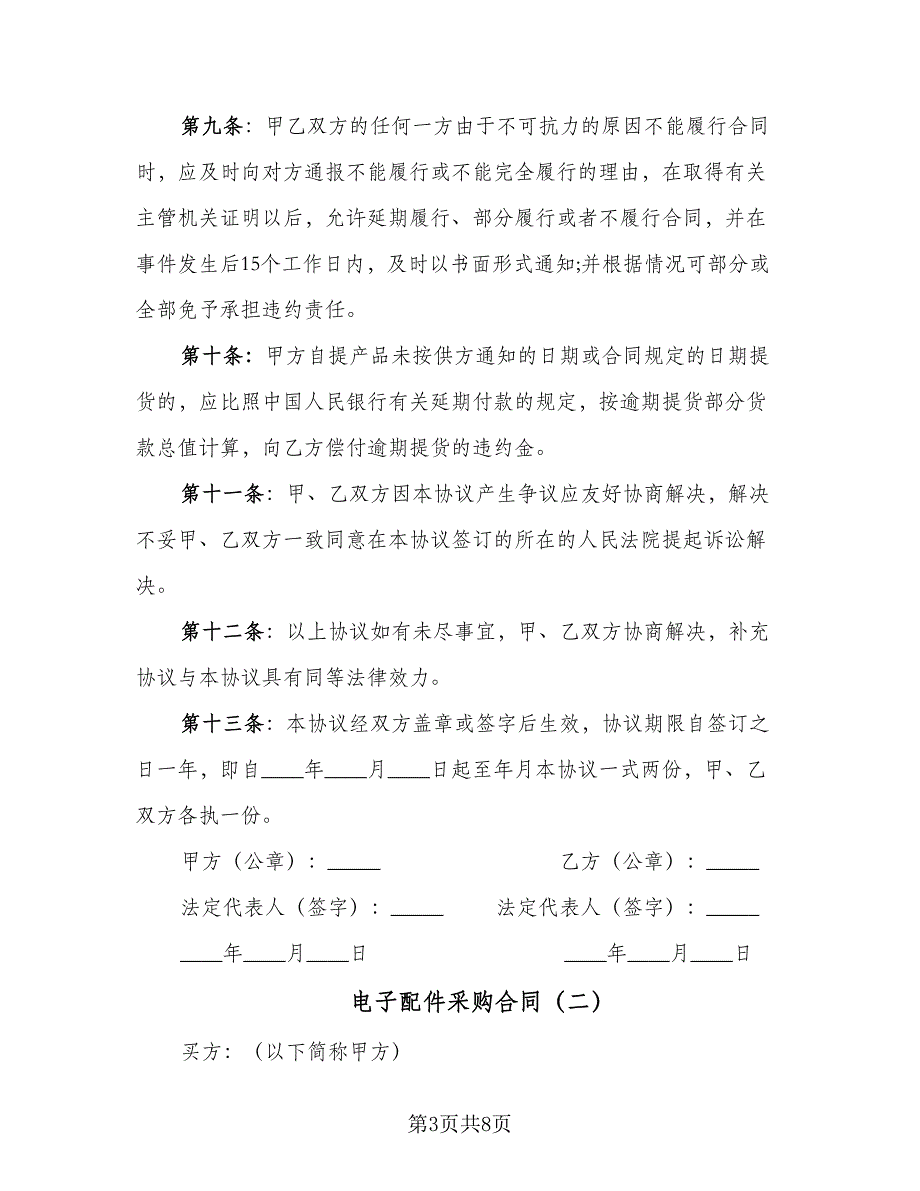 第九条：甲乙双方的任何一方由于不可抗力的原因不能履行合同
时，应及时向对方通报不能履行或不能完全履行的理由，在取得有关
主管机关证明以后，允许延期履行、部分履行或者不履行合同，并在
事件发生后15个工作日内，及时以书面形式通知;并根据情况可部分或
全部免予承担违约责任。
第十条：甲方自提产品未按供方通知的日期或合同规定的日期提
货的，应比照中国人民银行有关延期付款的规定，按逾期提货部分货
款总值计算，向乙方偿付逾期提货的违约金。
第十一条：甲、乙双方因本协议产生争议应友好协商解决，解决
不妥甲、乙双方一致同意在本协议签订的所在的人民法院提起诉讼解
决。
第十二条：以上协议如有未尽事宜，甲、乙双方协商解决，补充
协议与本协议具有同等法律效力。
第十三条：本协议经双方盖章或签字后生效，协议期限自签订之
日一年，即自____年____月____日起至年月本协议一式两份，甲、乙
双方各执一份。
甲方（公章）：_____ 乙方（公章）：_____
法定代表人（签字）：_____ 法定代表人（签字）：_____
____年____月____日 ____年____月____日
电子配件采购合同（二）
买方：（以下简称甲方）
第3页共8页